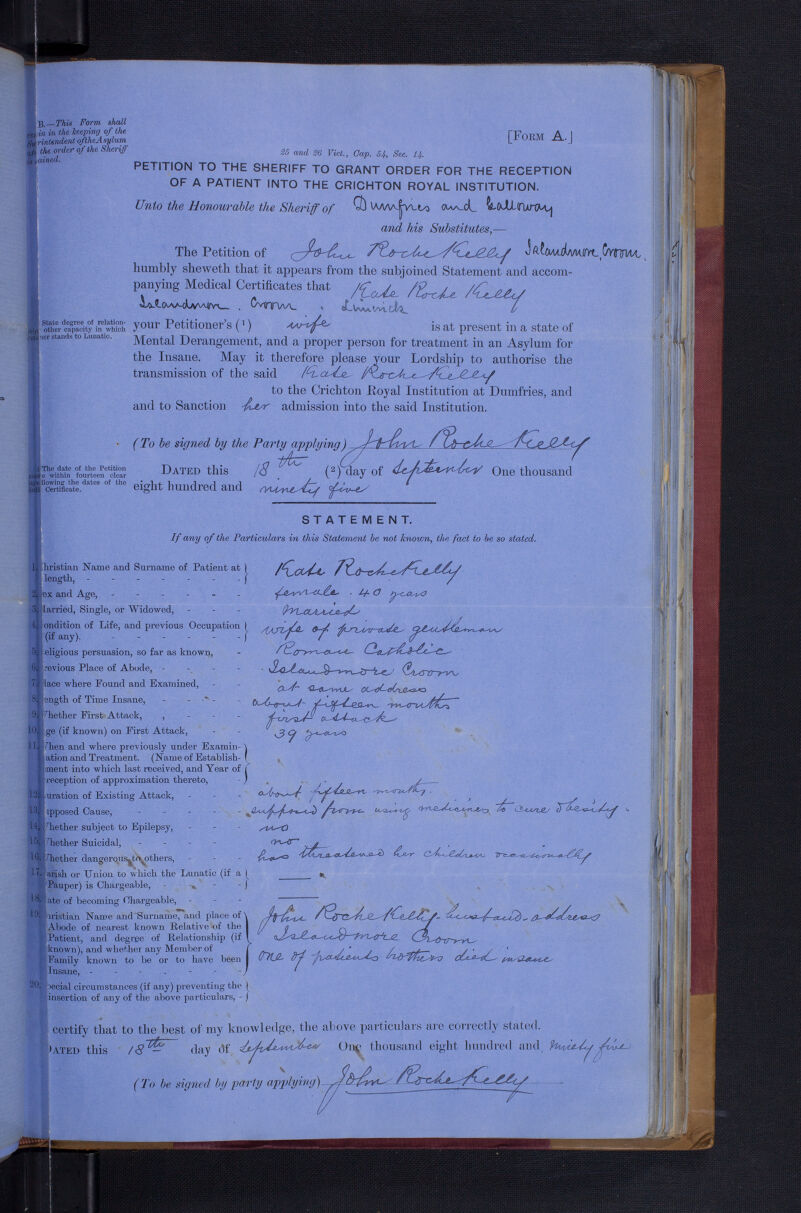 B.—This Form shall
in in the keeping of the
rintendent of the Asylum
the order of the Sheriff
ained.
[FORM A.]
25 and 26 Vict., Cap. 54, Sec. 14.
PETITION TO THE SHERIFF TO GRANT ORDER FOR THE RECEPTION
OF A PATIENT INTO THE CRICHTON ROYAL INSTITUTION.
Unto the Honourable the Sheriff of Dumfries and Galloway
and his Substitutes,—
The Petition of John Roche Kelly Islandmore, Croom,
humbly sheweth that it appears from the subjoined Statement and accom-
panying Medical Certificates that Kate Roche Kelly
Islandmore. Croom. Limerick
State degree of relation-
other capacity in which
er stands to Lunatic.
your Petitioner's (1) wife is at present in a state of
Mental Derangement, and a proper person for treatment in an Asylum for
the Insane. May it therefore please your Lordship to authorise the
transmission of the said Kate Roche Kelly
to the Crichton Royal Institution at Dumfries, and
and to Sanction her admission into the said Institution.
(To be signed by the Party applying) John Roche Kelly
The date of the Petition
within fourteen clear
llowing the dates of the
Certificate.
DATED this 18th (2) day of September One thousand
eight hundred and ninety five
STATEMENT.
If any of the Particulars in this Statement be not known, the fact to be so stated.
1. hristian Name and Surname of Patient at
length, - Kate Roche Kelly
2. ex and Age, - female . 40 years
3. arried, Single, or Widowed, - Married
4. ondition of Life, and previous Occupation
(if any). - wife of private gentleman
5. eligious persuasion, so far as known, - Roman Catholic
6. revious Place of Abode, - Islandmore Croom
7. lace where Found and Examined, - at same address
8. ength of Time Insane, - about fifteen months
9. hether First Attack, - first attack
10. ge (if known) on First Attack, - 39 years
11. hen and where previously under Examin-
ation and Treatment. (Name of Establish-
ment into which last received, and Year of
reception of approximation thereto, -
12. uration of Existing Attack, - about fifteen months.
13. pposed Cause, - supposed from using medicines to cure obesity.
14. hether subject to Epilepsy, - no
15. hether Suicidal, - no
16. hether dangerous to others, - has threatened her children occasionally
17. arish or Union to which the Lunatic (if a
Pauper) is Chargeable, -
18. ate of becoming Chargeable, -
19. hristian Name and Surname, and place of
Abode of nearest known Relative of the
Patient, and degree of Relationship (if
known), and whether any Member of
Family known to be or to have been
Insane, -
John Roche Kelly husband - address
Islandmore Croom
One of patients brothers died insane
20. pecial circumstances (if any) preventing the
insertion of any of the above particulars, -
certify that to the best of my knowledge, the above particulars are correctly stated.
DATED this 18th day of September One thousand eight hundred and ninety five
(To be signed by party applying) John Roche Kelly